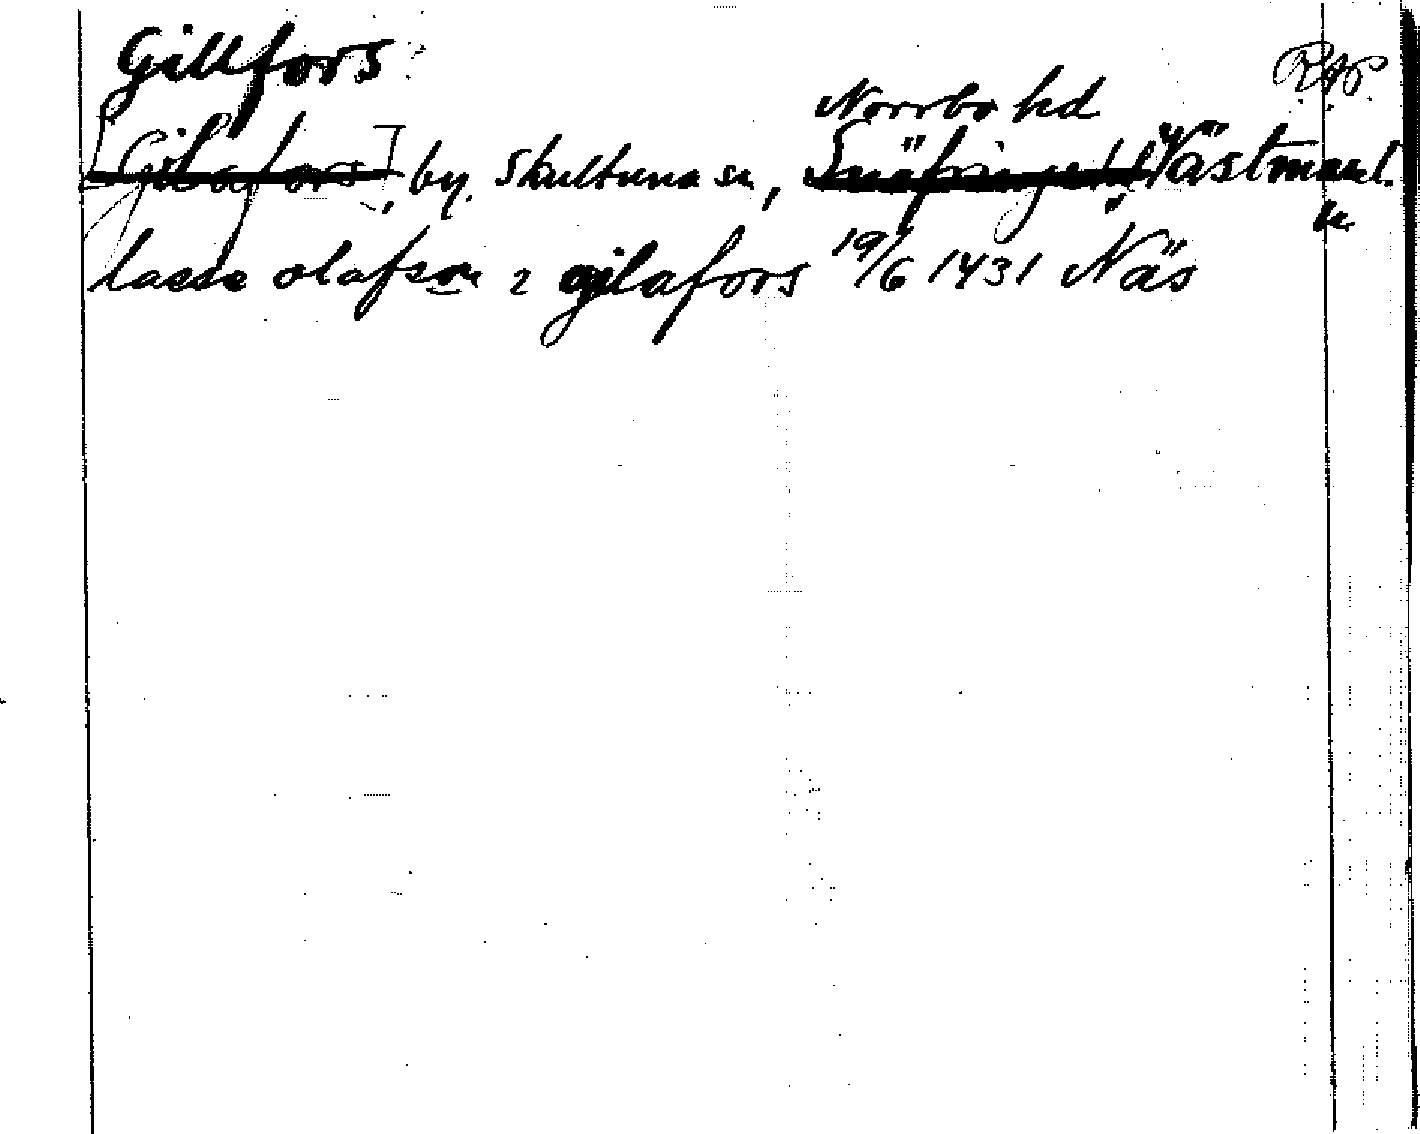 Gillfors RAP
Norrbo hd
[Gilafors], by. Skultuna sn, Snäfringe hd, Västmanl.
n.
lasse olafson i gilafors 19/6 1431 Näs